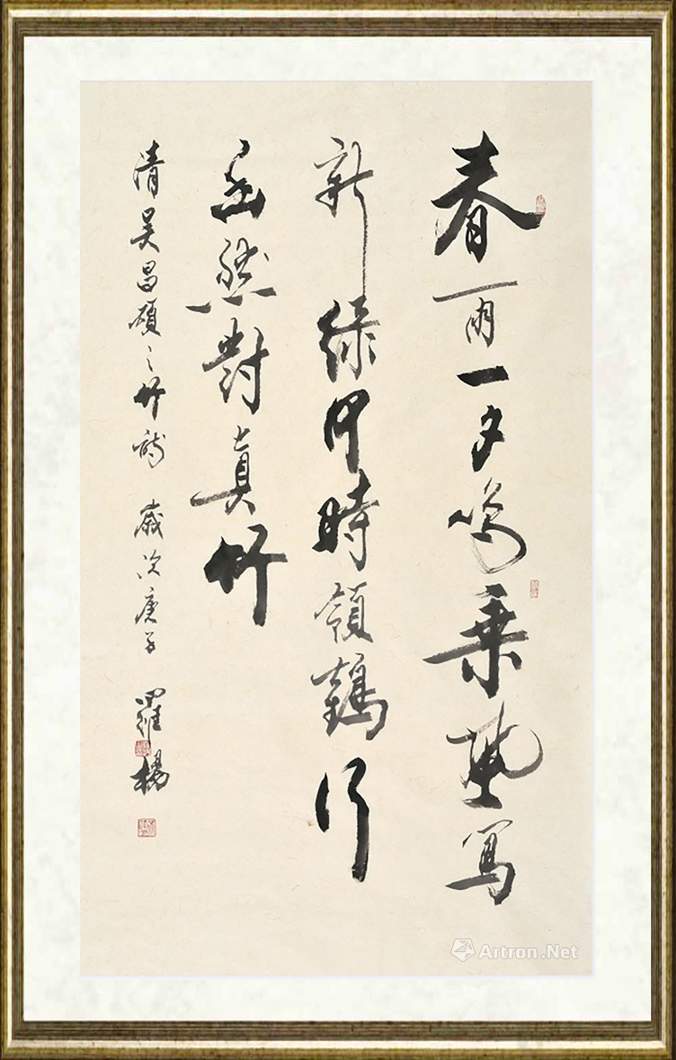 春雨一夕鳴乘興寫
新綠何時領鶴行
幽然對真竹
清吴昌碩之竹詩 歲次庚子 羅楊
Artron.Net